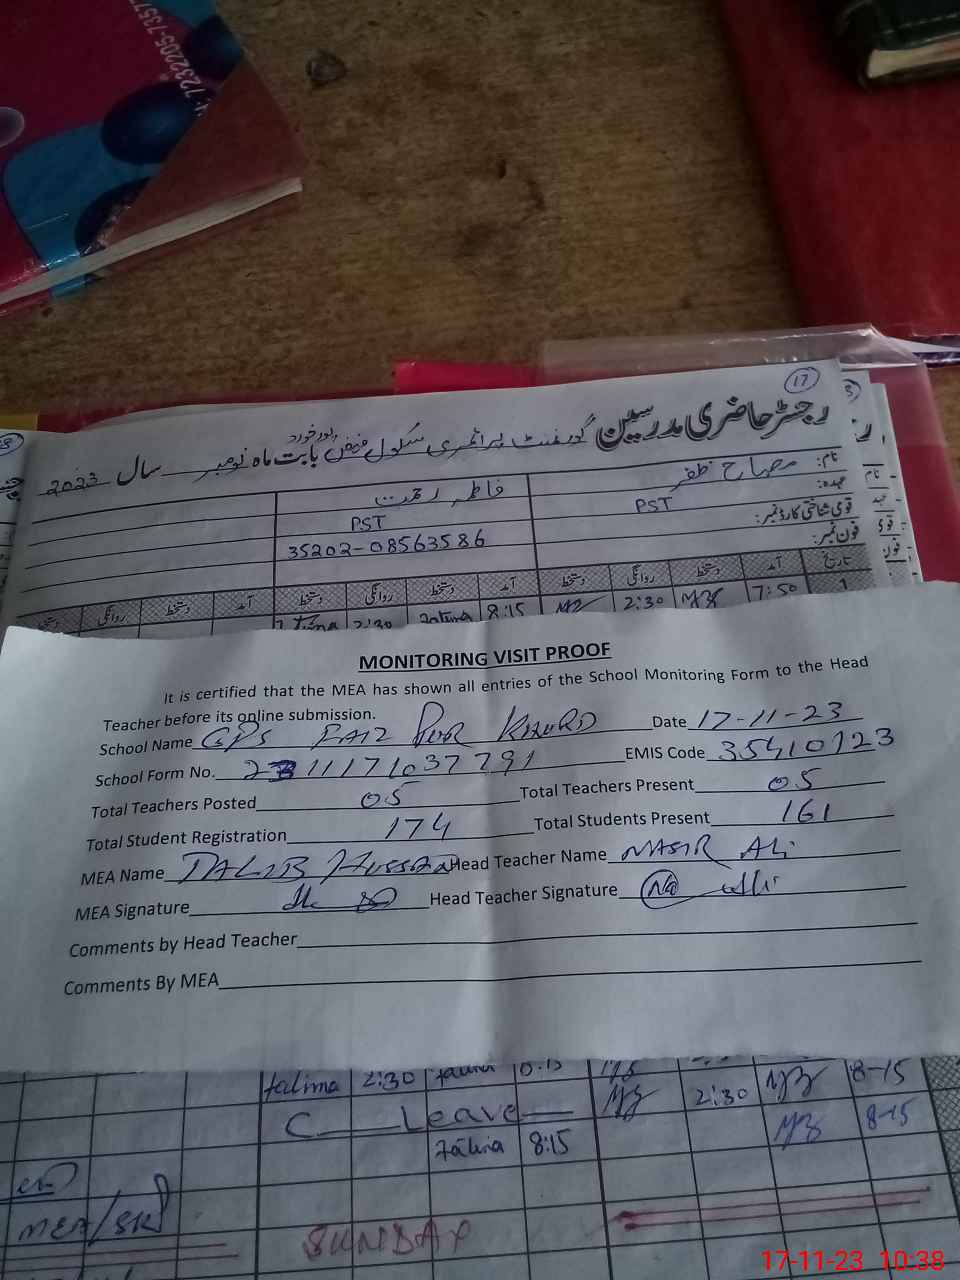 7232205-7357
17
رجسٹر حاضری مدرسین گورنمنٹ پرائمری سکول فیض پور خورد بابت ماہ نومبر سال 2023
نام: مصباح ظفر فاطمہ رحمت
عہدہ: PST PST
قومی شناختی کارڈ نمبر: 35202-08563586
فون نمبر:
تاریخ آمد دستخط روانگی دستخط آمد دستخط روانگی دستخط آمد دستخط روانگی دستخط
1 7:50 2:30 8:15 Fatima 2:30
MONITORING VISIT PROOF
It is certified that the MEA has shown all entries of the School Monitoring Form to the Head
Teacher before its online submission.
School Name GPS FAIZ PUR KHURD Date 17-11-23
School Form No. EMIS Code 35410123
Total Teachers Posted 05 Total Teachers Present 05
Total Student Registration 174 Total Students Present 161
MEA Name TALIB Hussain Head Teacher Name NASIR Ali
MEA Signature Head Teacher Signature
Comments by Head Teacher
Comments By MEA
fatima 2:30 fatima 8:15
C Leave 2:30 8-15
fatima 8:15 8-15
MEA/SKP
SUNDAY
17-11-23 10:38